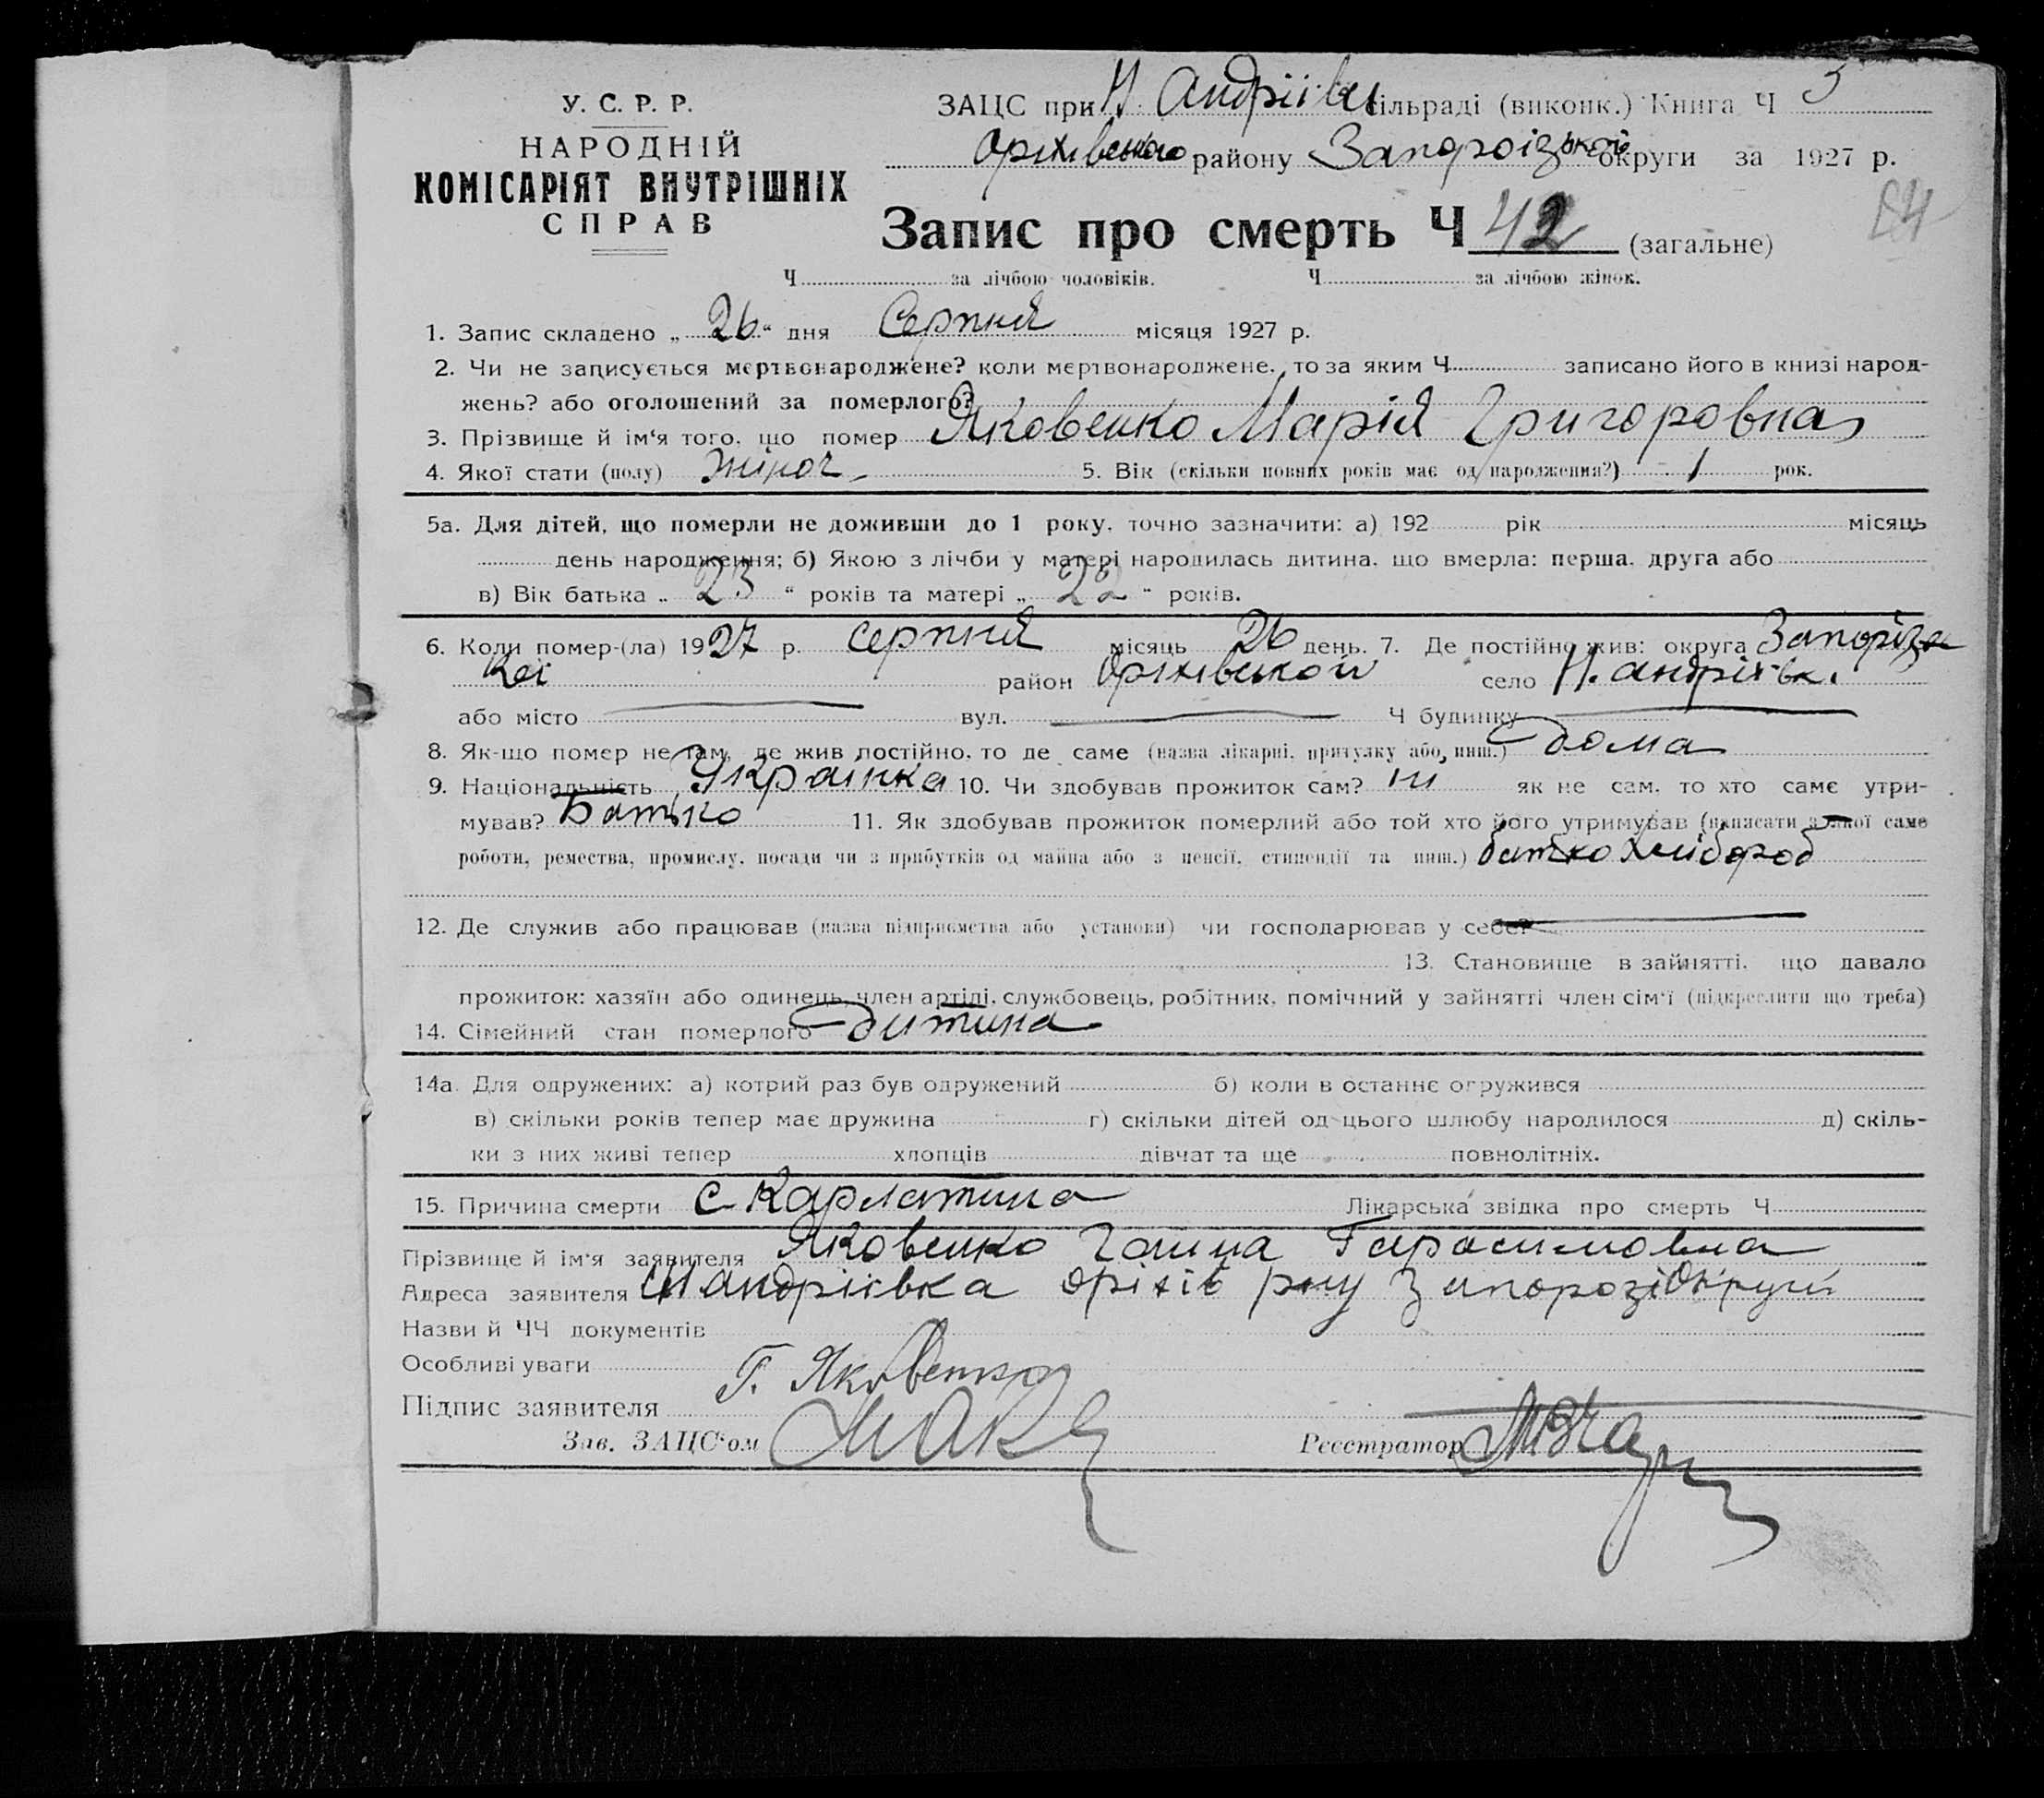 У. С. Р. Р.
НАРОДНІЙ
КОМІСАРІЯТ ВНУТРІШНІХ
СПРАВ
ЗАЦС при Н Андріївц сільраді (виконк.) Книга Ч
Оріхівського району Запороізької округи за 1927 р.
Запис про смерть Ч 42 (загальне)
Ч за лічбою чоловіків. Ч за лічбою жінок.
1. Запис складено „26“ дня Серпня місяця 1927 р.
2. Чи не записується мертвонароджене? коли мертвонароджене, то за яким Ч записано його в книзі народ-
жень? або оголошений за померлого?
3. Прізвище й ім‘я того, що помер Яковенко Марія Григоровна
4. Якої стати (полу) Жіноч 5. Вік (скільки повних років має од народження?) 1 рок.
5а. Для дітей, що померли не доживши до 1 року, точно зазначити: а) 192 рік місяць
день народження; б) Якою з лічби у матері народилась дитина, що вмерла: перша, друга або
в) Вік батька „23“ років та матері „22“ років.
6. Коли помер-(ла) 1927 р. серпня місяць 26 день. 7. Де постійно жив: округа Запорізь
кої район Оріхівськой село Н. андріївк.
або місто вул. Ч будинку
8. Як-що помер не там, де жив постійно, то де саме (назва лікарні, притулку або инш.) дома
9. Національність Українка 10. Чи здобував прожиток сам? ні як не сам, то хто самє утри-
мував? Батько 11. Як здобував прожиток померлий або той хто його утримував (написати з якої саме
роботи, ремества, промислу, посади чи з прибутків од майна або з пенсії, стипендії та инш.) батко хлібороб
12. Де служив або працював (назва підприємства або установи) чи господарював у себе?
13. Становище в зайнятті, що давало
прожиток: хазяїн або одинець, член артілі, службовець, робітник, помічний у зайнятті член сім‘ї (підкреслити що треба)
14. Сімейний стан померлого дитина
14а. Для одружених: а) котрий раз був одружений б) коли в останнє огружився
в) скільки років тепер має дружина г) скільки дітей од цього шлюбу народилося д) скіль-
ки з них живі тепер хлопців дівчат та ще повнолітніх.
15. Причина смерти Скарлатина Лікарська звідка про смерть Ч
Прізвище й ім‘я заявителя Яковенко Ганна Гарасимовна
Адреса заявителя Н андріївка Оріхів р-ну Запорозі Округи
Назви й ЧЧ документів
Особливі уваги
Підпис заявителя Г. Яковенко
Зав. ЗАЦС‘ом Реєстратор